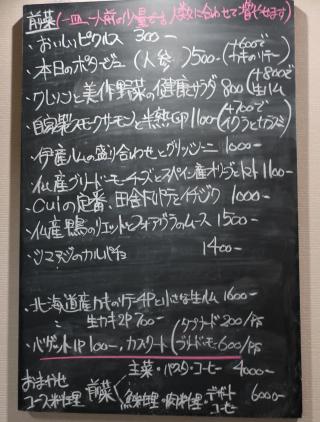 前菜(一皿一人前の少量です。人数に合わせて増やせます)
・おいしいピクルス 300-
・本日のポタージュ(人参)500-(+600でカキのソテー)
・クレソンと美作野菜の健康サラダ 800(+800で生ハム
・自家製スモークサーモンと半熟 1100(+700でイクラとカラスミ)
・伊産ハムの盛り合わせとグリッシーニ 1000-
・仏産ブリ・ド・モーチーズとスペイン産オリーブとトマト 1100-
・Cuiの定番、田舎風パテとイチジク 1000-
・仏産鴨のリエットとフォアグラのムース 1500-
・シマアジのカルパチョ 1400-
・北海道産カキのソテー4Pと小さな生ハム 1600-
・生カキ2P 700-
・バゲット1P 100-、カスクート(タプナード 200/P ブリ・ド・モー 600/P
おまかせコース料理 前菜 主菜・パスタ・コーヒー 4000-
魚料理・肉料理・デザートコーヒー 6000-